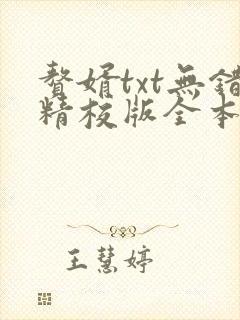 贅婿txt無錯
精校版全本
王慧婷